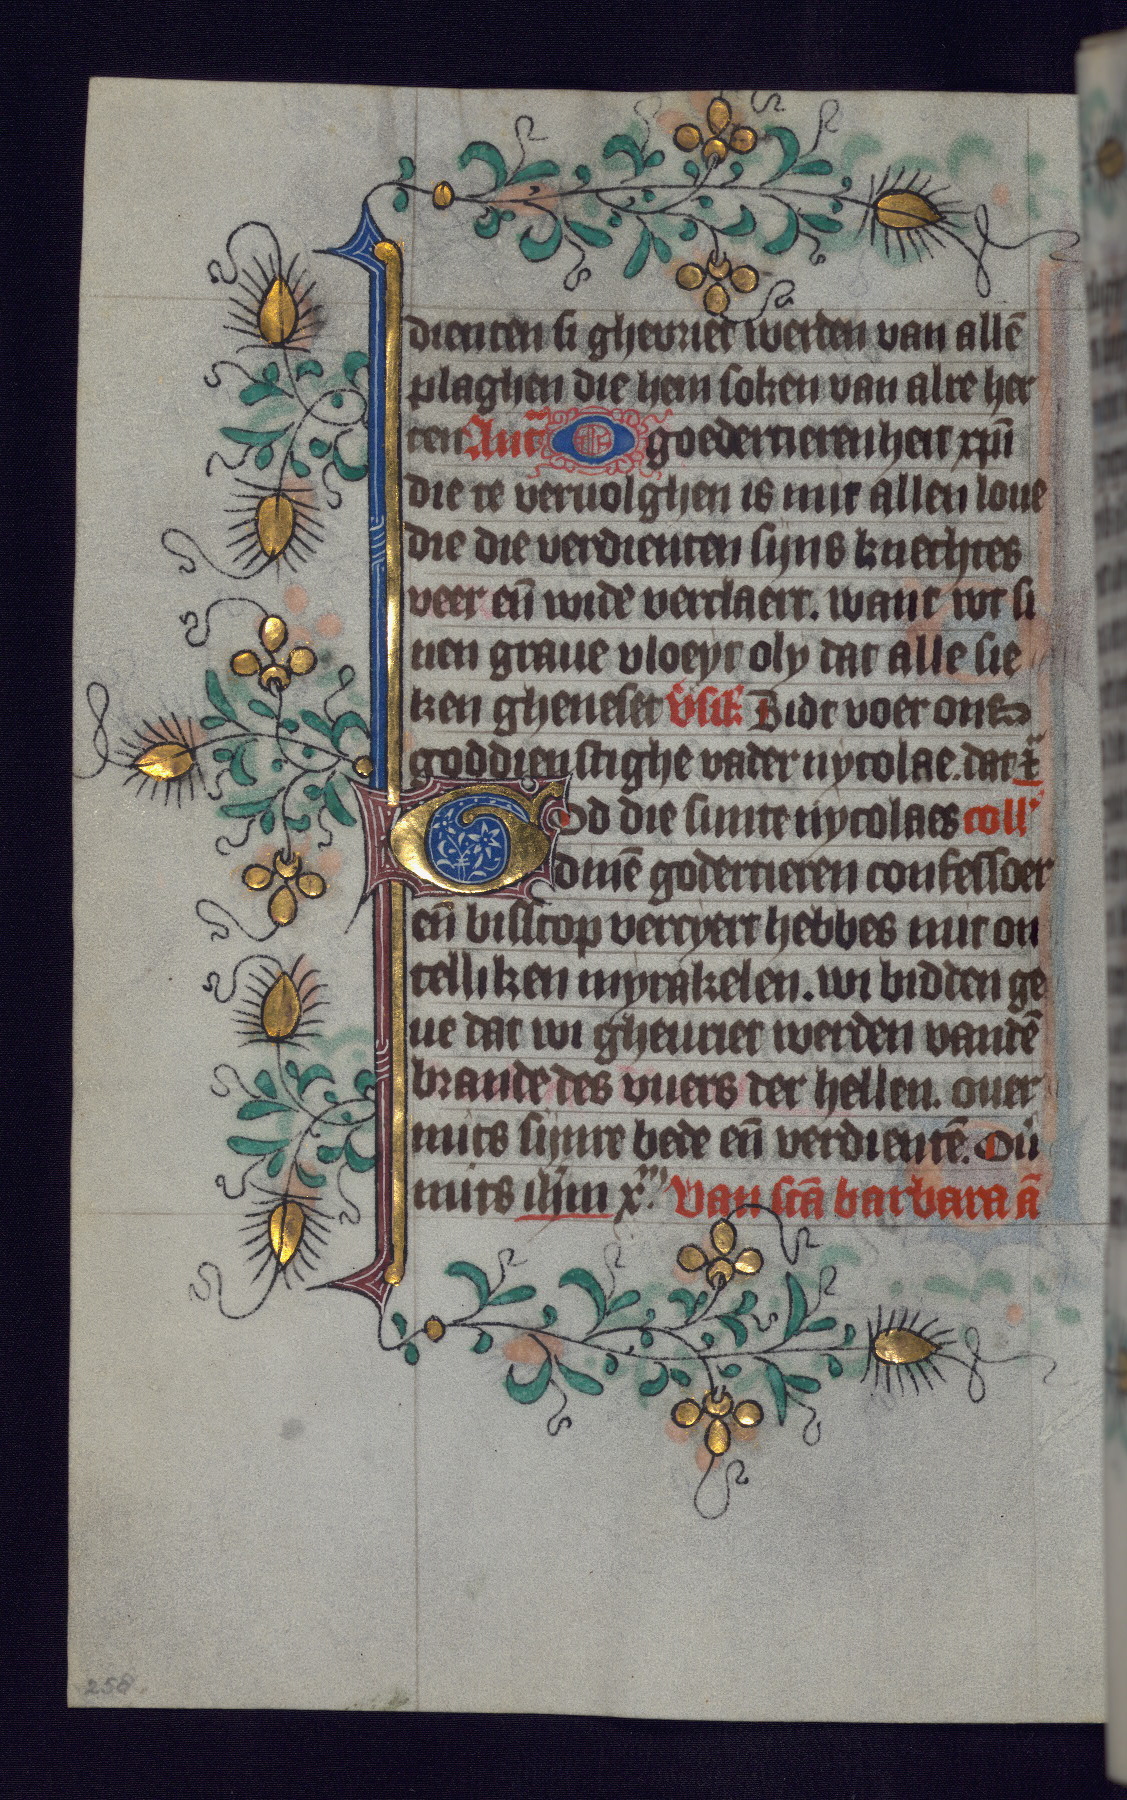 dienten si ghevriet werden van allē
plaghen die hem soken van alre her
ten Antͫ O goedertierenheit xpūi
die te vervolghen is mit allen loue
die die verdienten sijns knechtes
veer eñ wide verclaert. want wt si
nen graue vloeyt oly dat alle sie
ken gheneset v̄sik̄ Bidt voer ons
goddienstighe vader nycolae. dat x̄
God die sinte nycolaes coll'
dinē godertieren confessoer
eñ bisscop vercyert hebbes mit on
telliken myrakelen. wi bidden ge
ue dat wi gheuriet werden vandē
brande des vuers der hellen. ouer
mits sijnre bede eñ verdientē. Oū
mits ihm̄ xͫ Van scā barbara ā
258